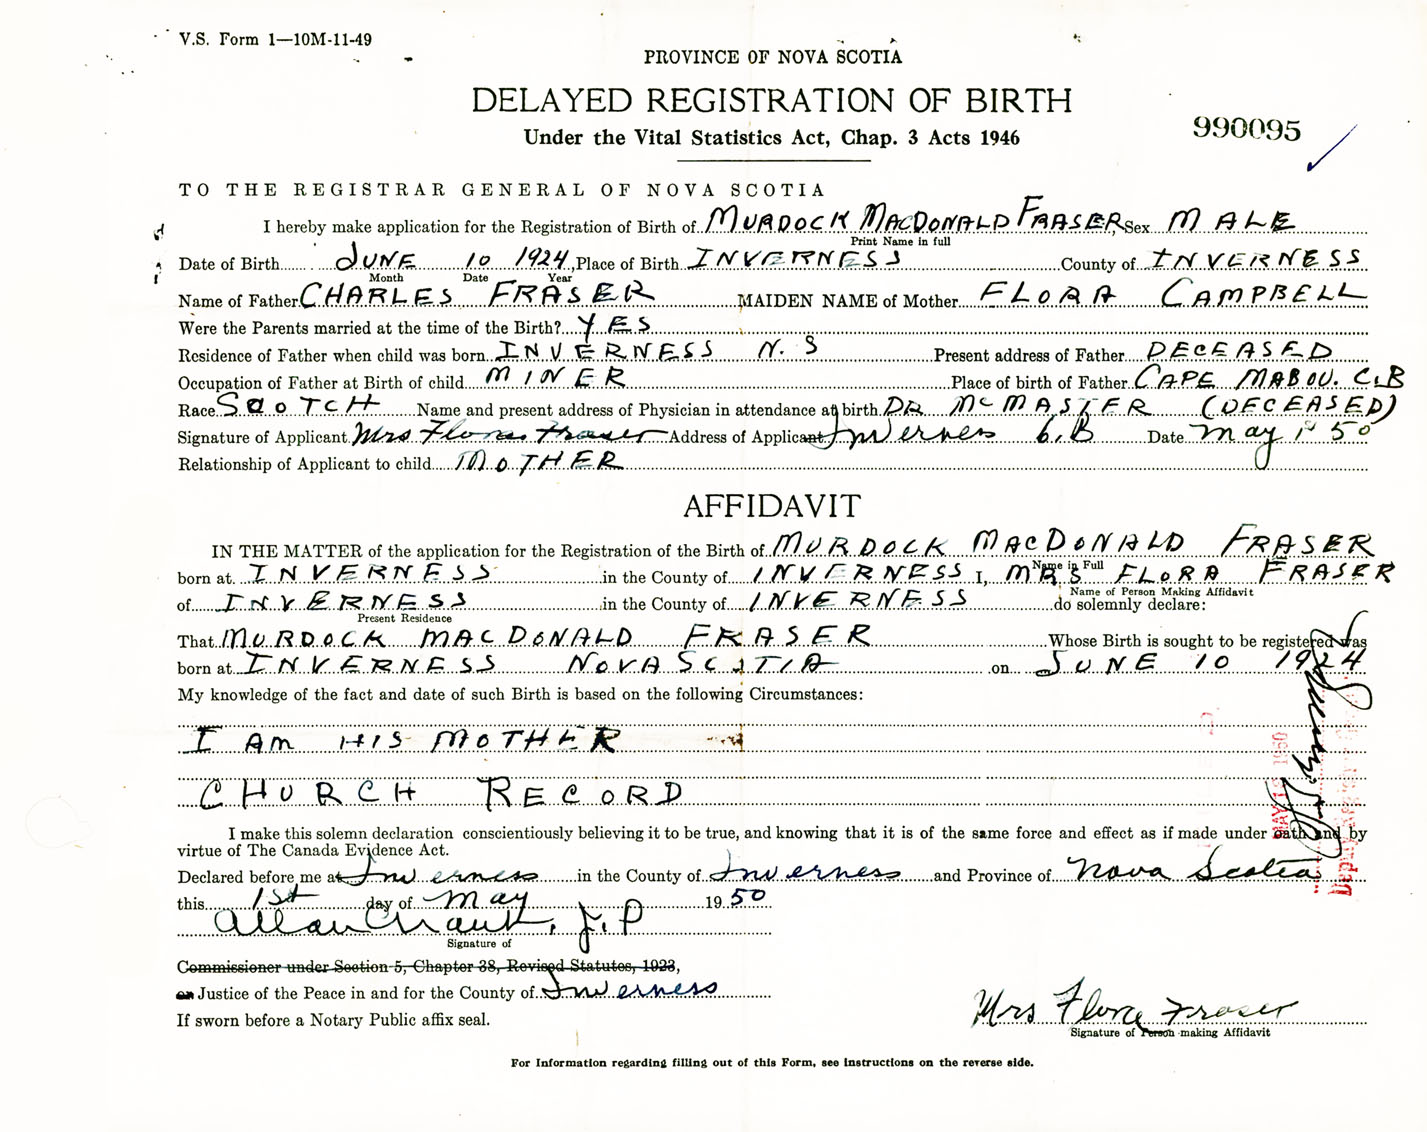 V.S. Form 1—10M-11-49
PROVINCE OF NOVA SCOTIA
DELAYED REGISTRATION OF BIRTH
Under the Vital Statistics Act, Chap. 3 Acts 1946
990095
TO THE REGISTRAR GENERAL OF NOVA SCOTIA
I hereby make application for the Registration of Birth of MURDOCK MACDONALD FRASER, Sex MALE
Print Name in full
Date of Birth JUNE 10 1924, Place of Birth INVERNESS County of INVERNESS
Month Date Year
Name of Father CHARLES FRASER MAIDEN NAME of Mother FLORA CAMPBELL
Were the Parents married at the time of the Birth? YES
Residence of Father when child was born INVERNESS N.S Present address of Father DECEASED
Occupation of Father at Birth of child MINER Place of birth of Father CAPE MABOU. C.B
Race SCOTCH Name and present address of Physician in attendance at birth DR McMASTER (DECEASED)
Signature of Applicant Mrs Flora Fraser Address of Applicant Inverness C.B Date May 1st 50
Relationship of Applicant to child MOTHER
AFFIDAVIT
IN THE MATTER of the application for the Registration of the Birth of MURDOCK MACDONALD FRASER
Name in Full
born at INVERNESS in the County of INVERNESS I, MRS FLORA FRASER
Name of Person Making Affidavit
of INVERNESS in the County of INVERNESS do solemnly declare:
Present Residence
That MURDOCK MACDONALD FRASER Whose Birth is sought to be registered was
born at INVERNESS NOVA SCOTIA on JUNE 10 1924
My knowledge of the fact and date of such Birth is based on the following Circumstances:
I AM HIS MOTHER
CHURCH RECORD
I make this solemn declaration conscientiously believing it to be true, and knowing that it is of the same force and effect as if made under oath and by
virtue of The Canada Evidence Act.
Declared before me at Inverness in the County of Inverness and Province of Nova Scotia
this 1st day of May 1950
Allan J.P
Signature of
Commissioner under Section 5, Chapter 38, Revised Statutes, 1923,
or Justice of the Peace in and for the County of Inverness
If sworn before a Notary Public affix seal.
Mrs Flora Fraser
Signature of Person making Affidavit
For Information regarding filling out of this Form, see instructions on the reverse side.